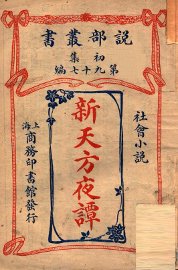 說部叢書
初集
第九十七編
社會小說
新天方夜譚
上海
商務印書館發行